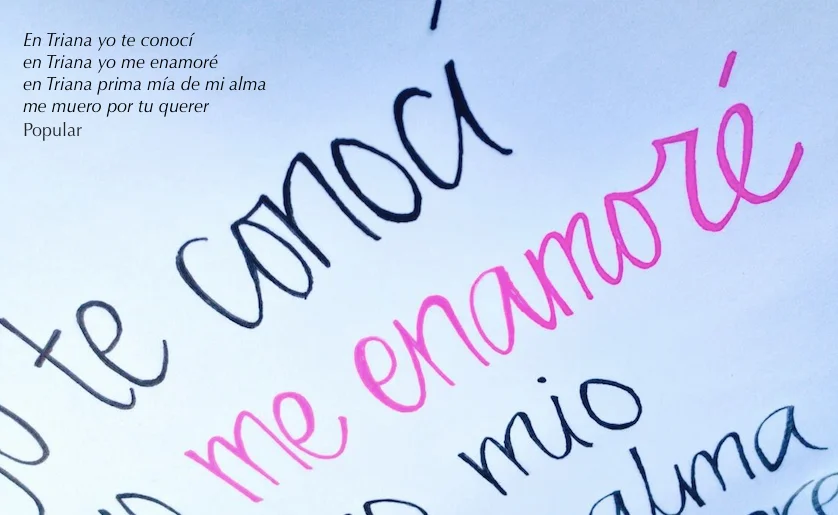 En Triana yo te conocí
en Triana yo me enamoré
en Triana prima mía de mi alma
me muero por tu querer
Popular
yo te conocí
me enamoré
mio
alma